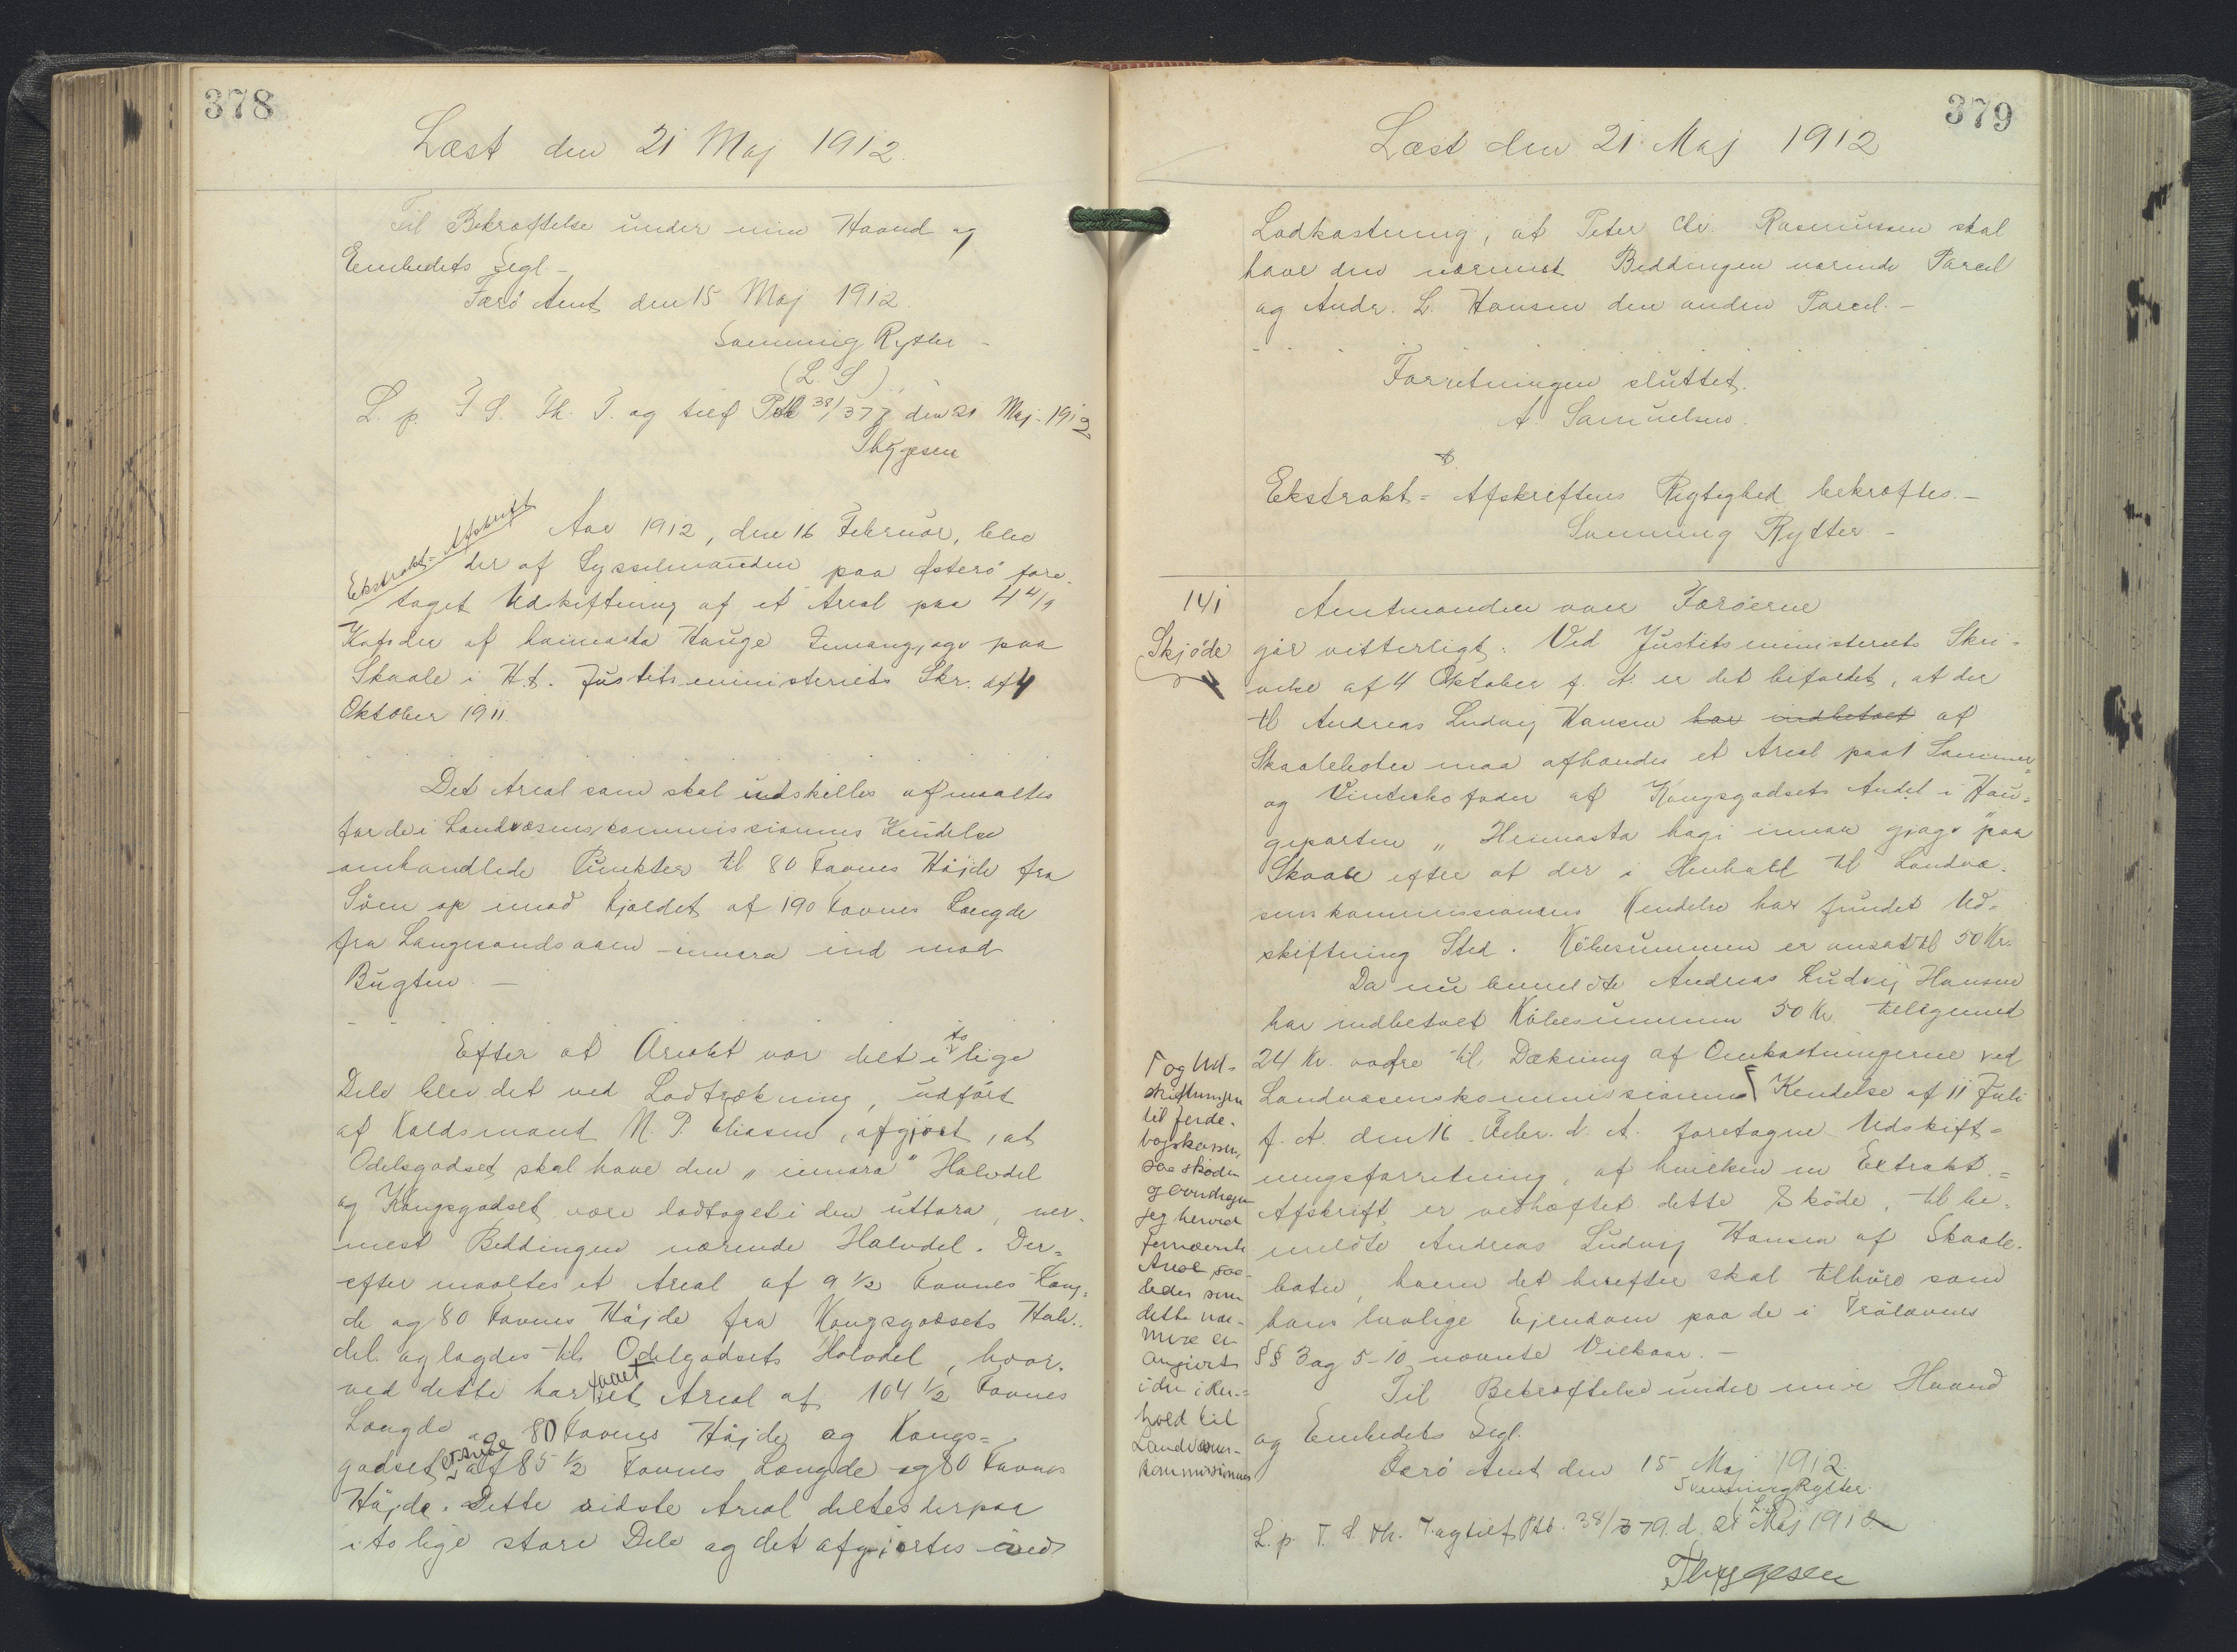 378
Læst den 21 Maj 1912.
Til Bekræftelse under min Haand og
Embedets Segl –
Færö Amt den 15 Maj 1912.
Svenning Rytter –
(L. S)
L. p. F S. Th. T. og tilf Ptb 38/378 den 21 Maj 1912
Thygesen
Ekstrakt-Afskrift
Aar 1912, den 16 Februar, blev
der af Sysselmanden paa Østerö fore-
taget Udskiftning af et Areal paa 4 4/9
Kofoder af heimasta Hauge Innangjagv paa
Skaale i H.t. Justitsministeriets Skr. af 4
Oktober 1911.
Det Areal som skal udskilles afmaaltes
for de i Landvæsenscommissionens Kendelse
omhandlede Punkter til 80 Favnes Höjde fra
Söen op imod Fjeldet af 190 Favnes Længde
fra Langesandsaaen – innara ind mod
Bugten. –
Efter at Arealet var delt i to lige
Dele blev det ved Lodtrækning, udfört
af Valdsmand M. P. Eliasen, afgjort, at
Odelsgodset skal have den "innara" Halvdel
og Kongsgodset være lodtaget i den uttara, nær-
mest Beddingen værende Halvdel. Der-
efter maaltes et Areal af 9 1/2 Favnes Læng-
de og 80 Favnes Höjde fra Kongsgodsets Halv-
del og lagdes til Odelgodsets Halvdel, hvor-
ved dette har faaet et Areal af 104 1/2 Favnes
Længde og 80 Favnes Höjde og Kongs-
godset et Areal af 85 1/2 Favnes Længde og 80 Favnes
Höjde. Dette sidste Areal deltes derpaa
i to lige store Dele og det afgjortes ved
379
Læst den 21 Maj 1912
Lodkastning, at Peter Chr. Rasmussen skal
have den nærmest Beddingen værende Parcel
og Andr. L. Hansen den anden Parcel. –
Forretningen sluttet.
A. Samuelsen.
Ekstrakt-Afskriftens Rigtighed bekræftes. –
Svenning Rytter –
141
Skjöde
Amtmanden over Færöerne
gör vitterligt: Ved Justitsministeriets Skri-
velse af 4 Oktober f. A. er det bifaldet, at der
til Andreas Ludvig Hansen har indbetalt af
Skaalebotn maa afhændes et Areal paa 1 Sommer-
og Vinterkofoder af Kongsgodsets Andel i Hau-
geparten "Heimasta hagi innan gjagv" paa
Skaale efter at der i Henhold til Landvæ-
senskommissionens Kendelse har fundet Ud-
skiftning Sted. Köbesummen er ansat til 50 Kr.
Da nu bemeldte Andreas Ludvig Hansen
har indbetalt Köbesummen 50 Kr tilligemed
24 Kr. vedre til Dækning af Omkostningerne ved
Landvæsenskommissionens Kendelse af 11 Juli
f. A. den 16 Febr. d. A. foretagne Udskift-
ningsforretning, af hvilken en Extrakt-
Afskrift er vedhæftet dette Sköde, til be-
meldte Andreas Ludvig Hansen af Skaale-
botn, hvem det herefter skal tilhöre som
hans lovlige Ejendom paa de i Frölovens
§§ 3 og 5-10 nævnte Vilkaar. –
Til Bekræftelse under min Haand
og Embedets Segl.
Færö Amt den 15 Maj 1912.
Svenning Rytter.
(L. S.)
L. p. F. S. Th. T. og tilf Ptb. 38/379. d. 21 Maj 1912
Thygesen
og Ud-
skiftningen
til Jorde-
bogskassen,
saa sköder
og overdrager
jeg herved
fornævnte
Areal saa-
ledes som
dette nær-
mere er
angivet
i den i Hen-
hold til
Landvæsens-
kommissionens